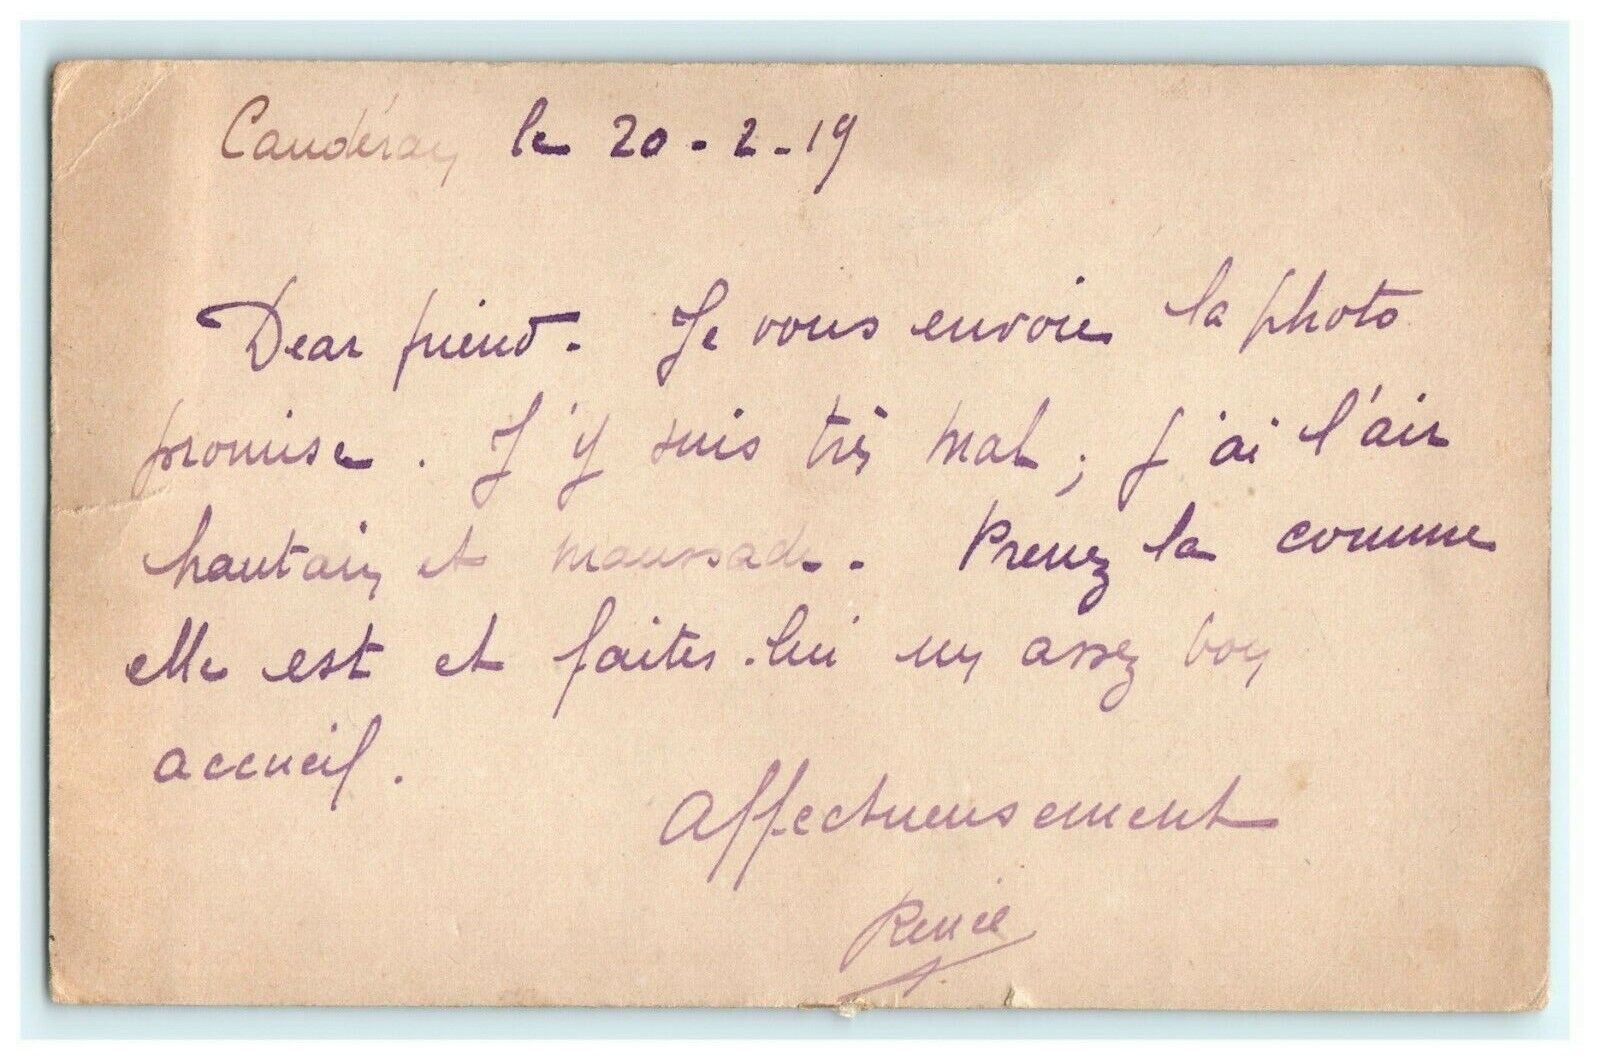 Caudéran le 20-2-19
Dear friend. Je vous envoie la photo
promise. J'y suis très mal; j'ai l'air
hautain et maussade.. Prenez la comme
elle est et faites-lui un assez bon
accueil.
Affectueusement
Renée